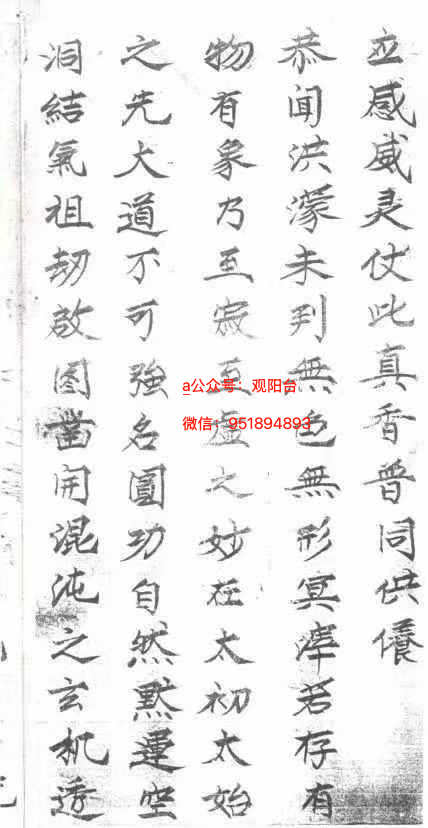 立感威灵仗此真香普同供養
恭聞洪濛未判無色無形冥滓若存有
物有象乃至寂至虛之妙在太初太始
之先大道不可強名圓功自然默運空
洞結氣祖劫啟图凿開混沌之玄机透
a公众号：观阳台
微信：951894893